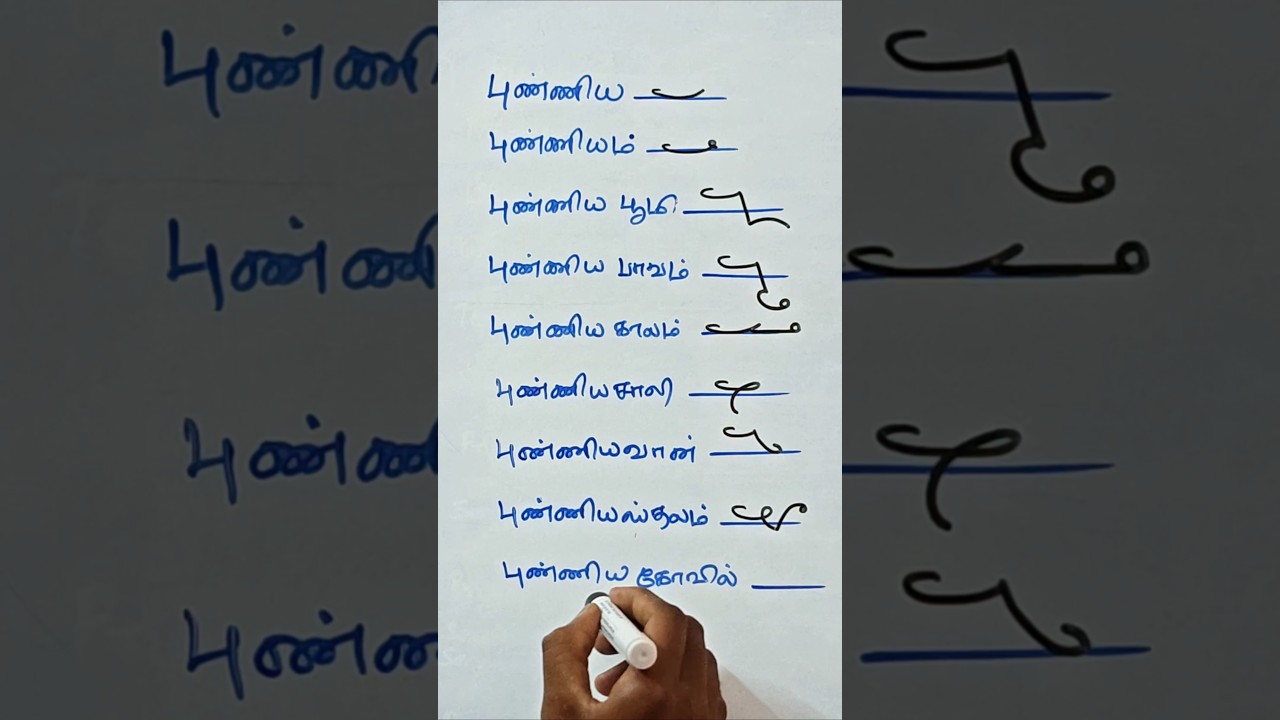 புண்ணிய
புண்ணியம்
புண்ணிய பூமி
புண்ணிய பாவம்
புண்ணிய காலம்
புண்ணியசாலி
புண்ணியவான்
புண்ணியஸ்தலம்
புண்ணிய கோவில்